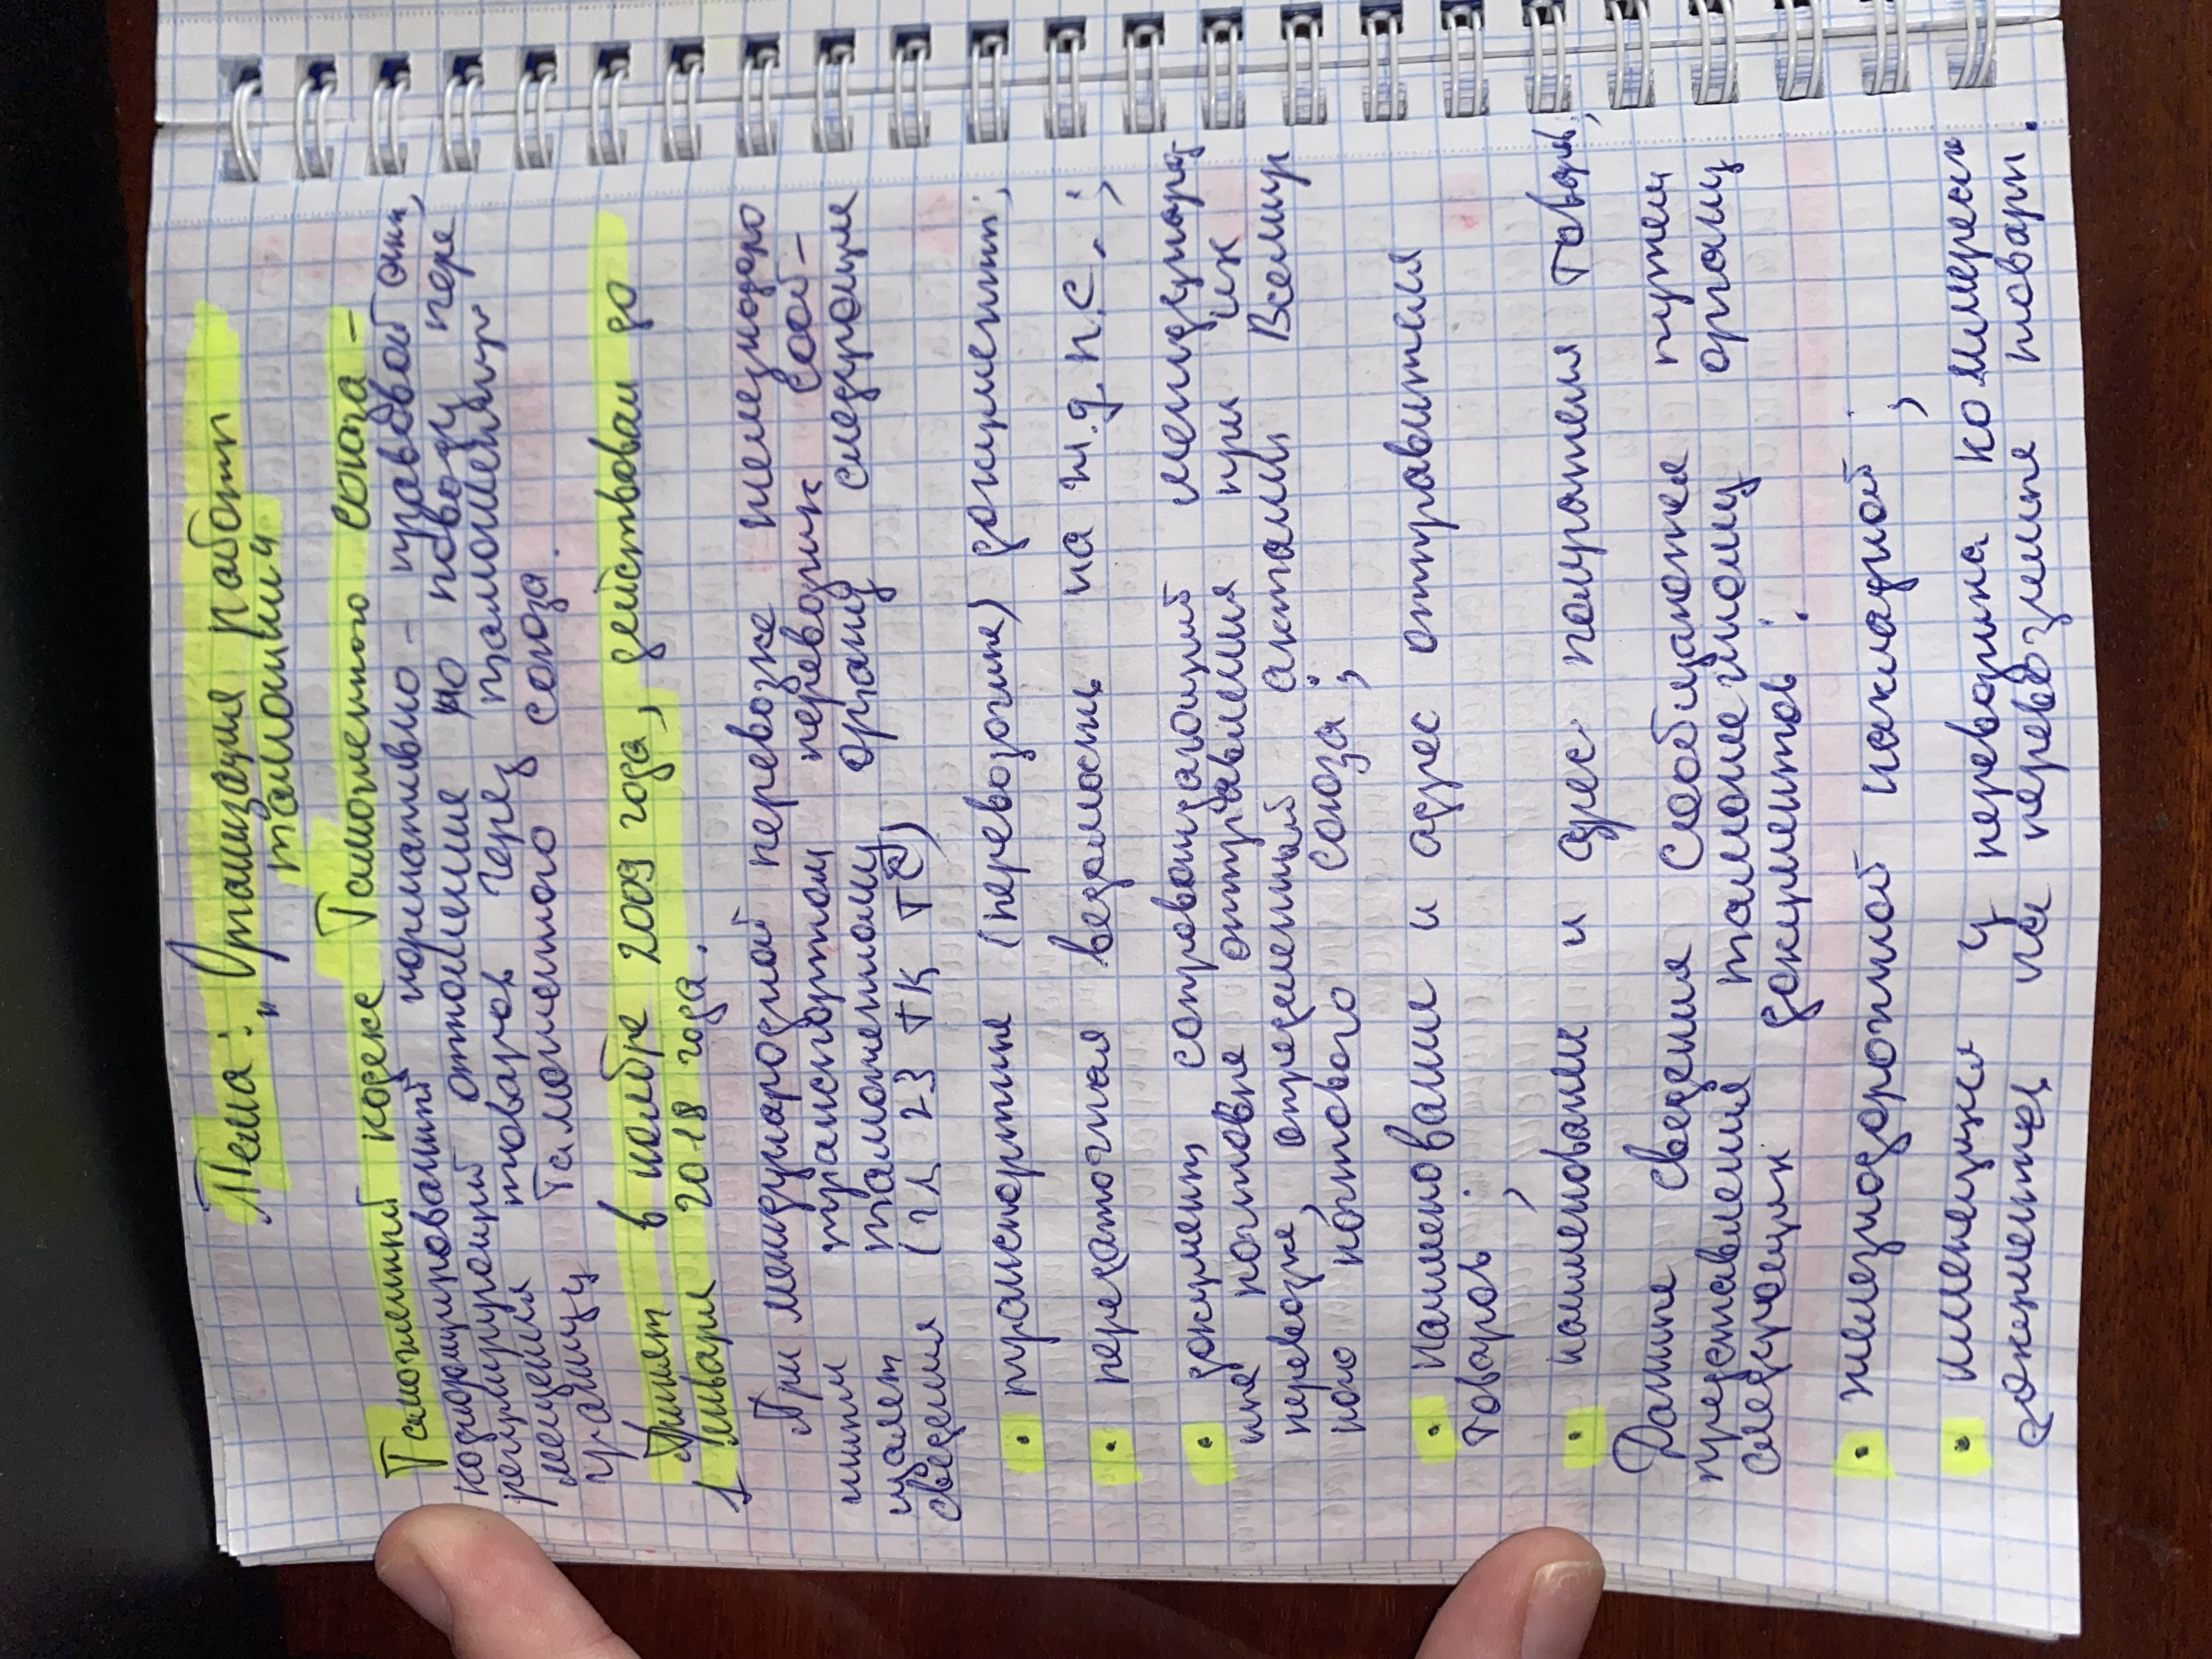 Тема: „Организация работы
таможни"
Таможенный кодекс Таможенного союза -
кодифицированный нормативно - правовой акт,
регулирующий отношение по поводу пере
мещения товаров через таможенную
границу Таможенного союза.
Принят в ноябре 2009 года, действовал до
1 января 2018 года.
При международной перевозке железнодоро
жным транспортом перевозчик сооб-
щает таможенному органу следующие
сведения (гл 23 ТК ТС)
• транспортные (перевозочные) документы;
• передаточная ведомость на ж.д.п.с.;
• документ, сопровождающий международ
ные почтовые отправления при их
перевозке, определенный актами Всемир
ного почтового союза;
• наименование и адрес отправителя
товаров;
• наименование и адрес получателя товаров;
Данные сведения сообщаются путем
представления таможенному органу
следующих документов:
• железнодорожной накладной;
• имеющихся у перевозчика коммерческих
документов на перевозимые товары.